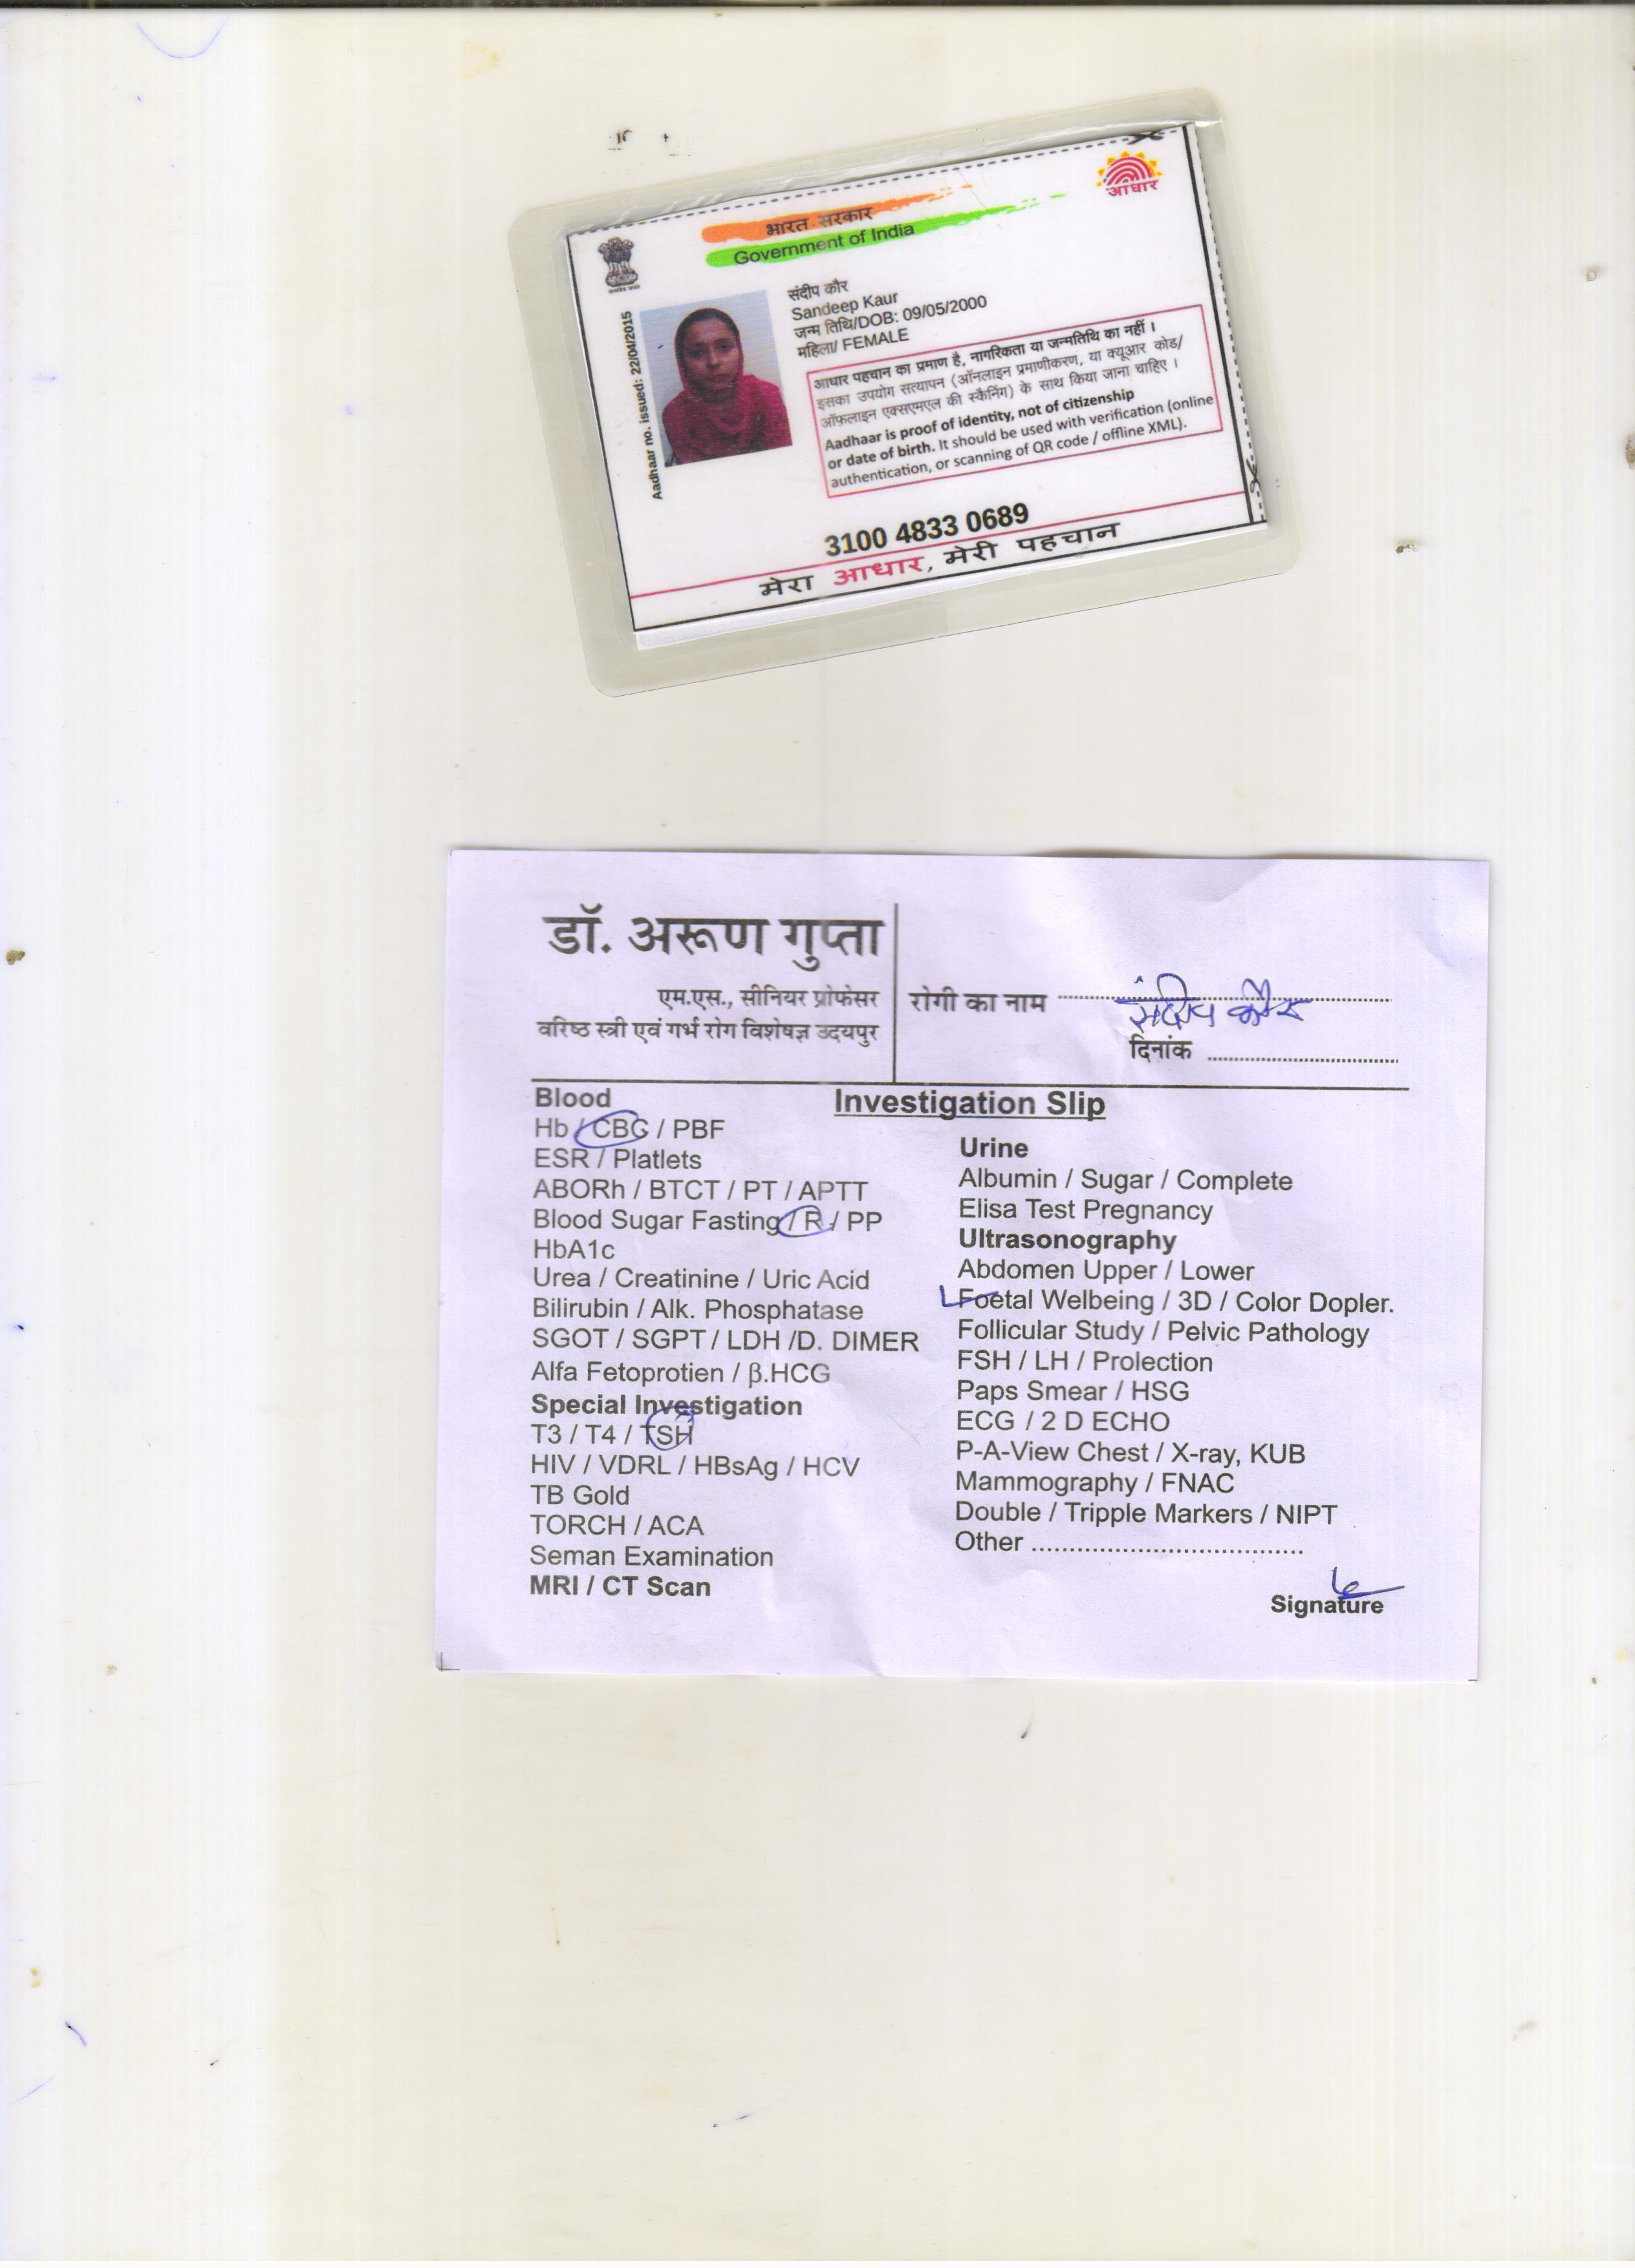 भारत सरकार
Government of India
आधार
Aadhaar no. issued: 22/04/2015
संदीप कौर
Sandeep Kaur
जन्म तिथि/DOB: 09/05/2000
महिला/ FEMALE
आधार पहचान का प्रमाण है, नागरिकता या जन्मतिथि का नहीं ।
इसका उपयोग सत्यापन (ऑनलाइन प्रमाणीकरण, या क्यूआर कोड/
ऑफलाइन एक्सएमएल की स्कैनिंग) के साथ किया जाना चाहिए ।
Aadhaar is proof of identity, not of citizenship
or date of birth. It should be used with verification (online
authentication, or scanning of QR code / offline XML).
3100 4833 0689
मेरा आधार, मेरी पहचान
डॉ. अरूण गुप्ता
एम.एस., सीनियर प्रोफेसर
वरिष्ठ स्त्री एवं गर्भ रोग विशेषज्ञ उदयपुर
रोगी का नाम संदीप कौर
दिनांक
Investigation Slip
Blood
Hb / CBC / PBF
ESR / Platlets
ABORh / BTCT / PT / APTT
Blood Sugar Fasting / R / PP
HbA1c
Urea / Creatinine / Uric Acid
Bilirubin / Alk. Phosphatase
SGOT / SGPT / LDH /D. DIMER
Alfa Fetoprotien / β.HCG
Special Investigation
T3 / T4 / TSH
HIV / VDRL / HBsAg / HCV
TB Gold
TORCH / ACA
Seman Examination
MRI / CT Scan
Urine
Albumin / Sugar / Complete
Elisa Test Pregnancy
Ultrasonography
Abdomen Upper / Lower
Foetal Welbeing / 3D / Color Dopler.
Follicular Study / Pelvic Pathology
FSH / LH / Prolection
Paps Smear / HSG
ECG / 2 D ECHO
P-A-View Chest / X-ray, KUB
Mammography / FNAC
Double / Tripple Markers / NIPT
Other ....................................
Signature